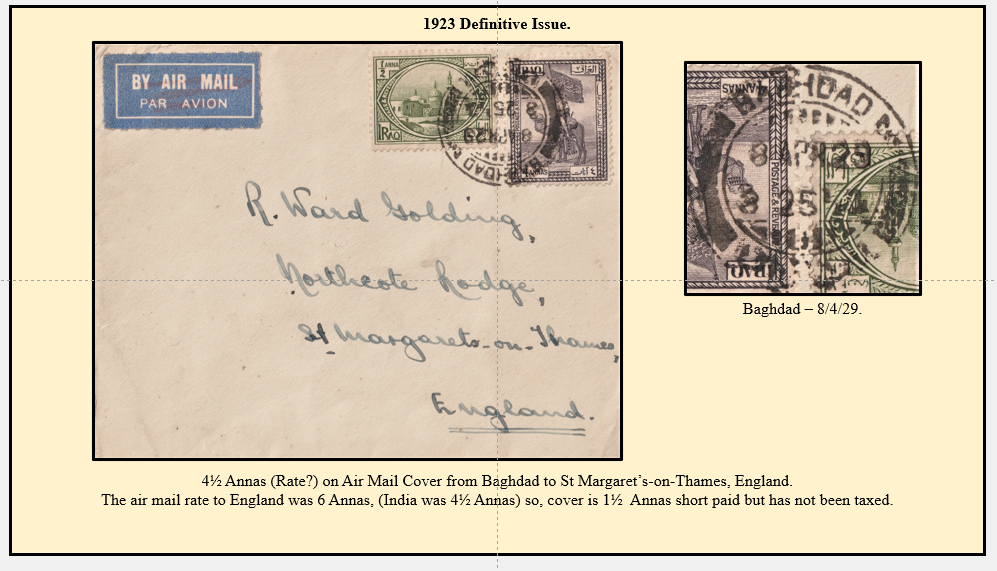 1923 Definitive Issue.
BY AIR MAIL
PAR AVION
½ ANNA
IRAQ
IRAQ
العراق
ANNAS
٤ آنات
BAGHDAD
8 APR 29
R. Ward Golding,
Northcote Lodge,
St Margarets-on-Thames,
England.
4 ANNAS
BAGHDAD
8 APR 29
POSTAGE & REVENUE
IRAQ
Baghdad – 8/4/29.
4½ Annas (Rate?) on Air Mail Cover from Baghdad to St Margaret’s-on-Thames, England.
The air mail rate to England was 6 Annas, (India was 4½ Annas) so, cover is 1½  Annas short paid but has not been taxed.